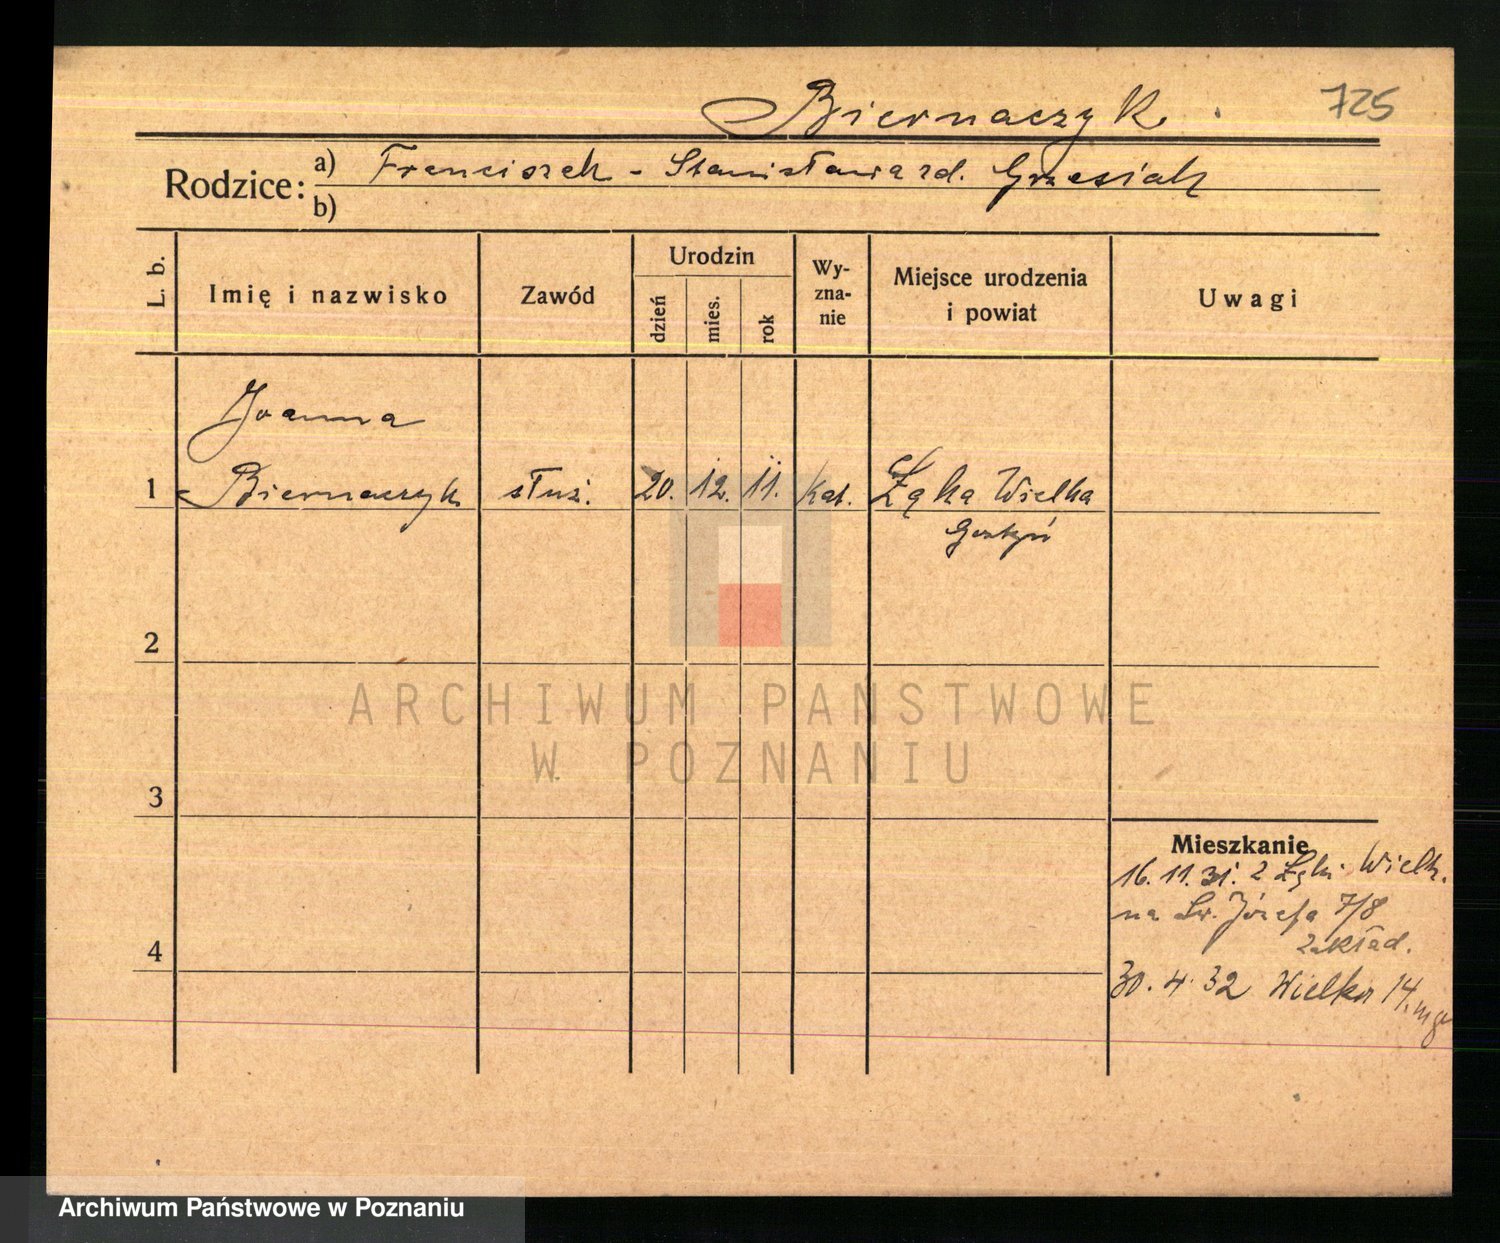 Biernaczyk
725
Rodzice: a) Franciszek - Stanisława zd. Grzesiak
b)
L. b.
Imię i nazwisko
Zawód
Urodzin
dzień
mies.
rok
Wy-
zna-
nie
Miejsce urodzenia
i powiat
Uwagi
Joanna
1 Biernaczyk służ. 20. 12. 11. Kat. Łąka Wielka
Gostyń
2
ARCHIWUM PAŃSTWOWE
W POZNANIU
3
Mieszkanie
16. 11. 31. z Łęki Wielk.
na Św. Józefa 7/8
zakład.
4
30. 4. 32 Wielka 14.
Archiwum Państwowe w Poznaniu